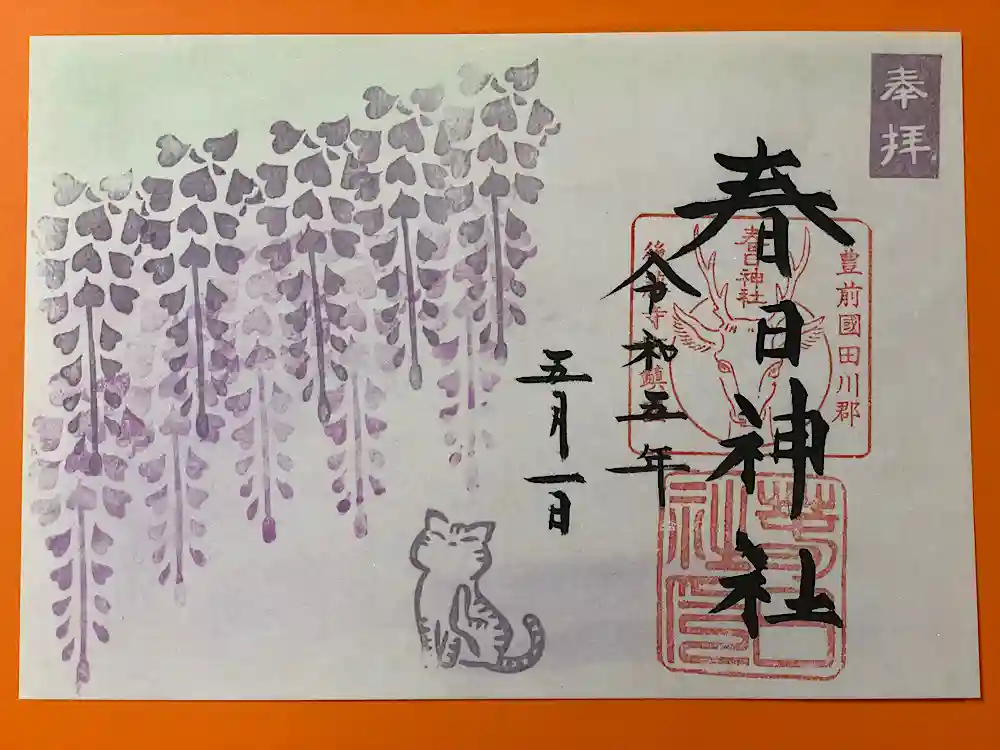 奉拝
豊前國田川郡
春日神社
春日神社
令和五年
五月一日